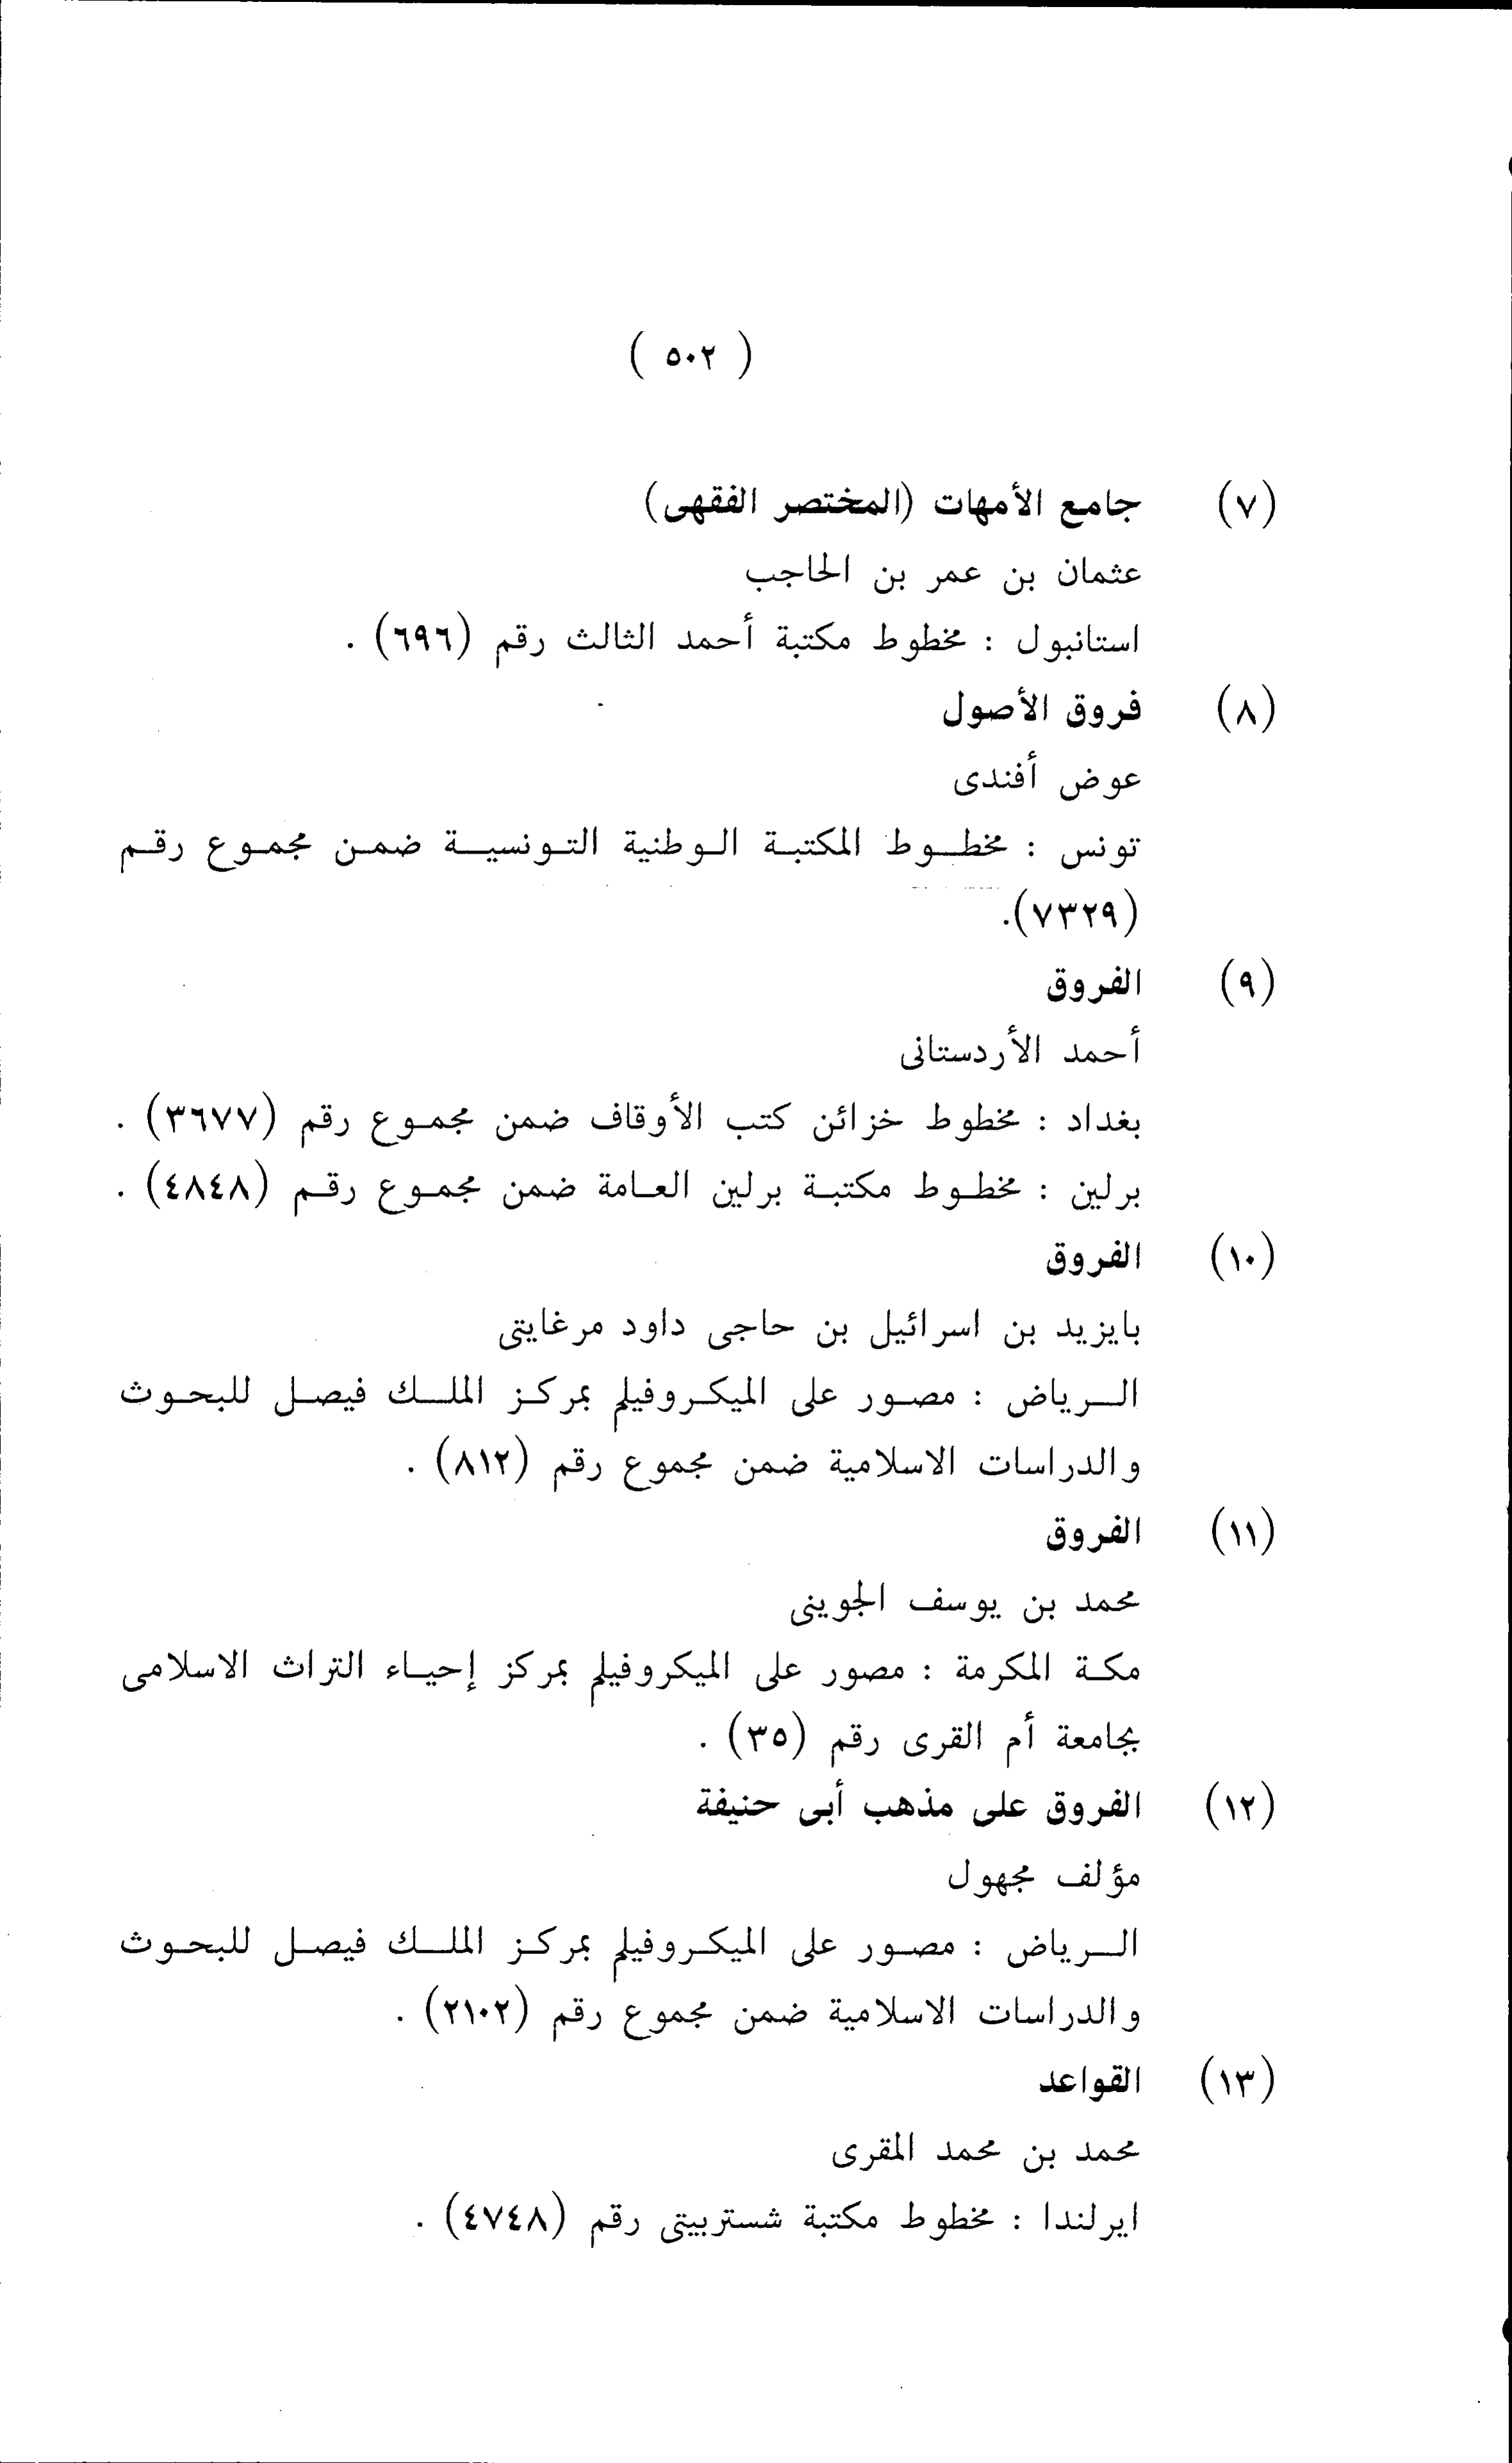 ( ٥٠٢ )
(٧) جامع الأمهات (المختصر الفقهى)
عثمان بن عمر بن الحاجب
استانبول : مخطوط مكتبة أحمد الثالث رقم (٦٩٦) .
(٨) فروق الأصول
عوض أفندى
تونس : مخطوط المكتبة الوطنية التونسية ضمن مجموع رقم
(٧٣٢٩).
(٩) الفروق
أحمد الأردستانى
بغداد : مخطوط خزائن كتب الأوقاف ضمن مجموع رقم (٣٦٧٧) .
برلين : مخطوط مكتبة برلين العامة ضمن مجموع رقم (٤٨٤٨) .
(١٠) الفروق
بايزيد بن اسرائيل بن حاجى داود مرغايتى
الرياض : مصور على الميكروفيلم بمركز الملك فيصل للبحوث
والدراسات الاسلامية ضمن مجموع رقم (٨١٢) .
(١١) الفروق
محمد بن يوسف الجوينى
مكة المكرمة : مصور على الميكروفيلم بمركز إحياء التراث الاسلامى
بجامعة أم القرى رقم (٣٥) .
(١٢) الفروق على مذهب أبى حنيفة
مؤلف مجهول
الرياض : مصور على الميكروفيلم بمركز الملك فيصل للبحوث
والدراسات الاسلامية ضمن مجموع رقم (٢١٠٢) .
(١٣) القواعد
محمد بن محمد المقرى
ايرلندا : مخطوط مكتبة شستربيتى رقم (٤٧٤٨) .